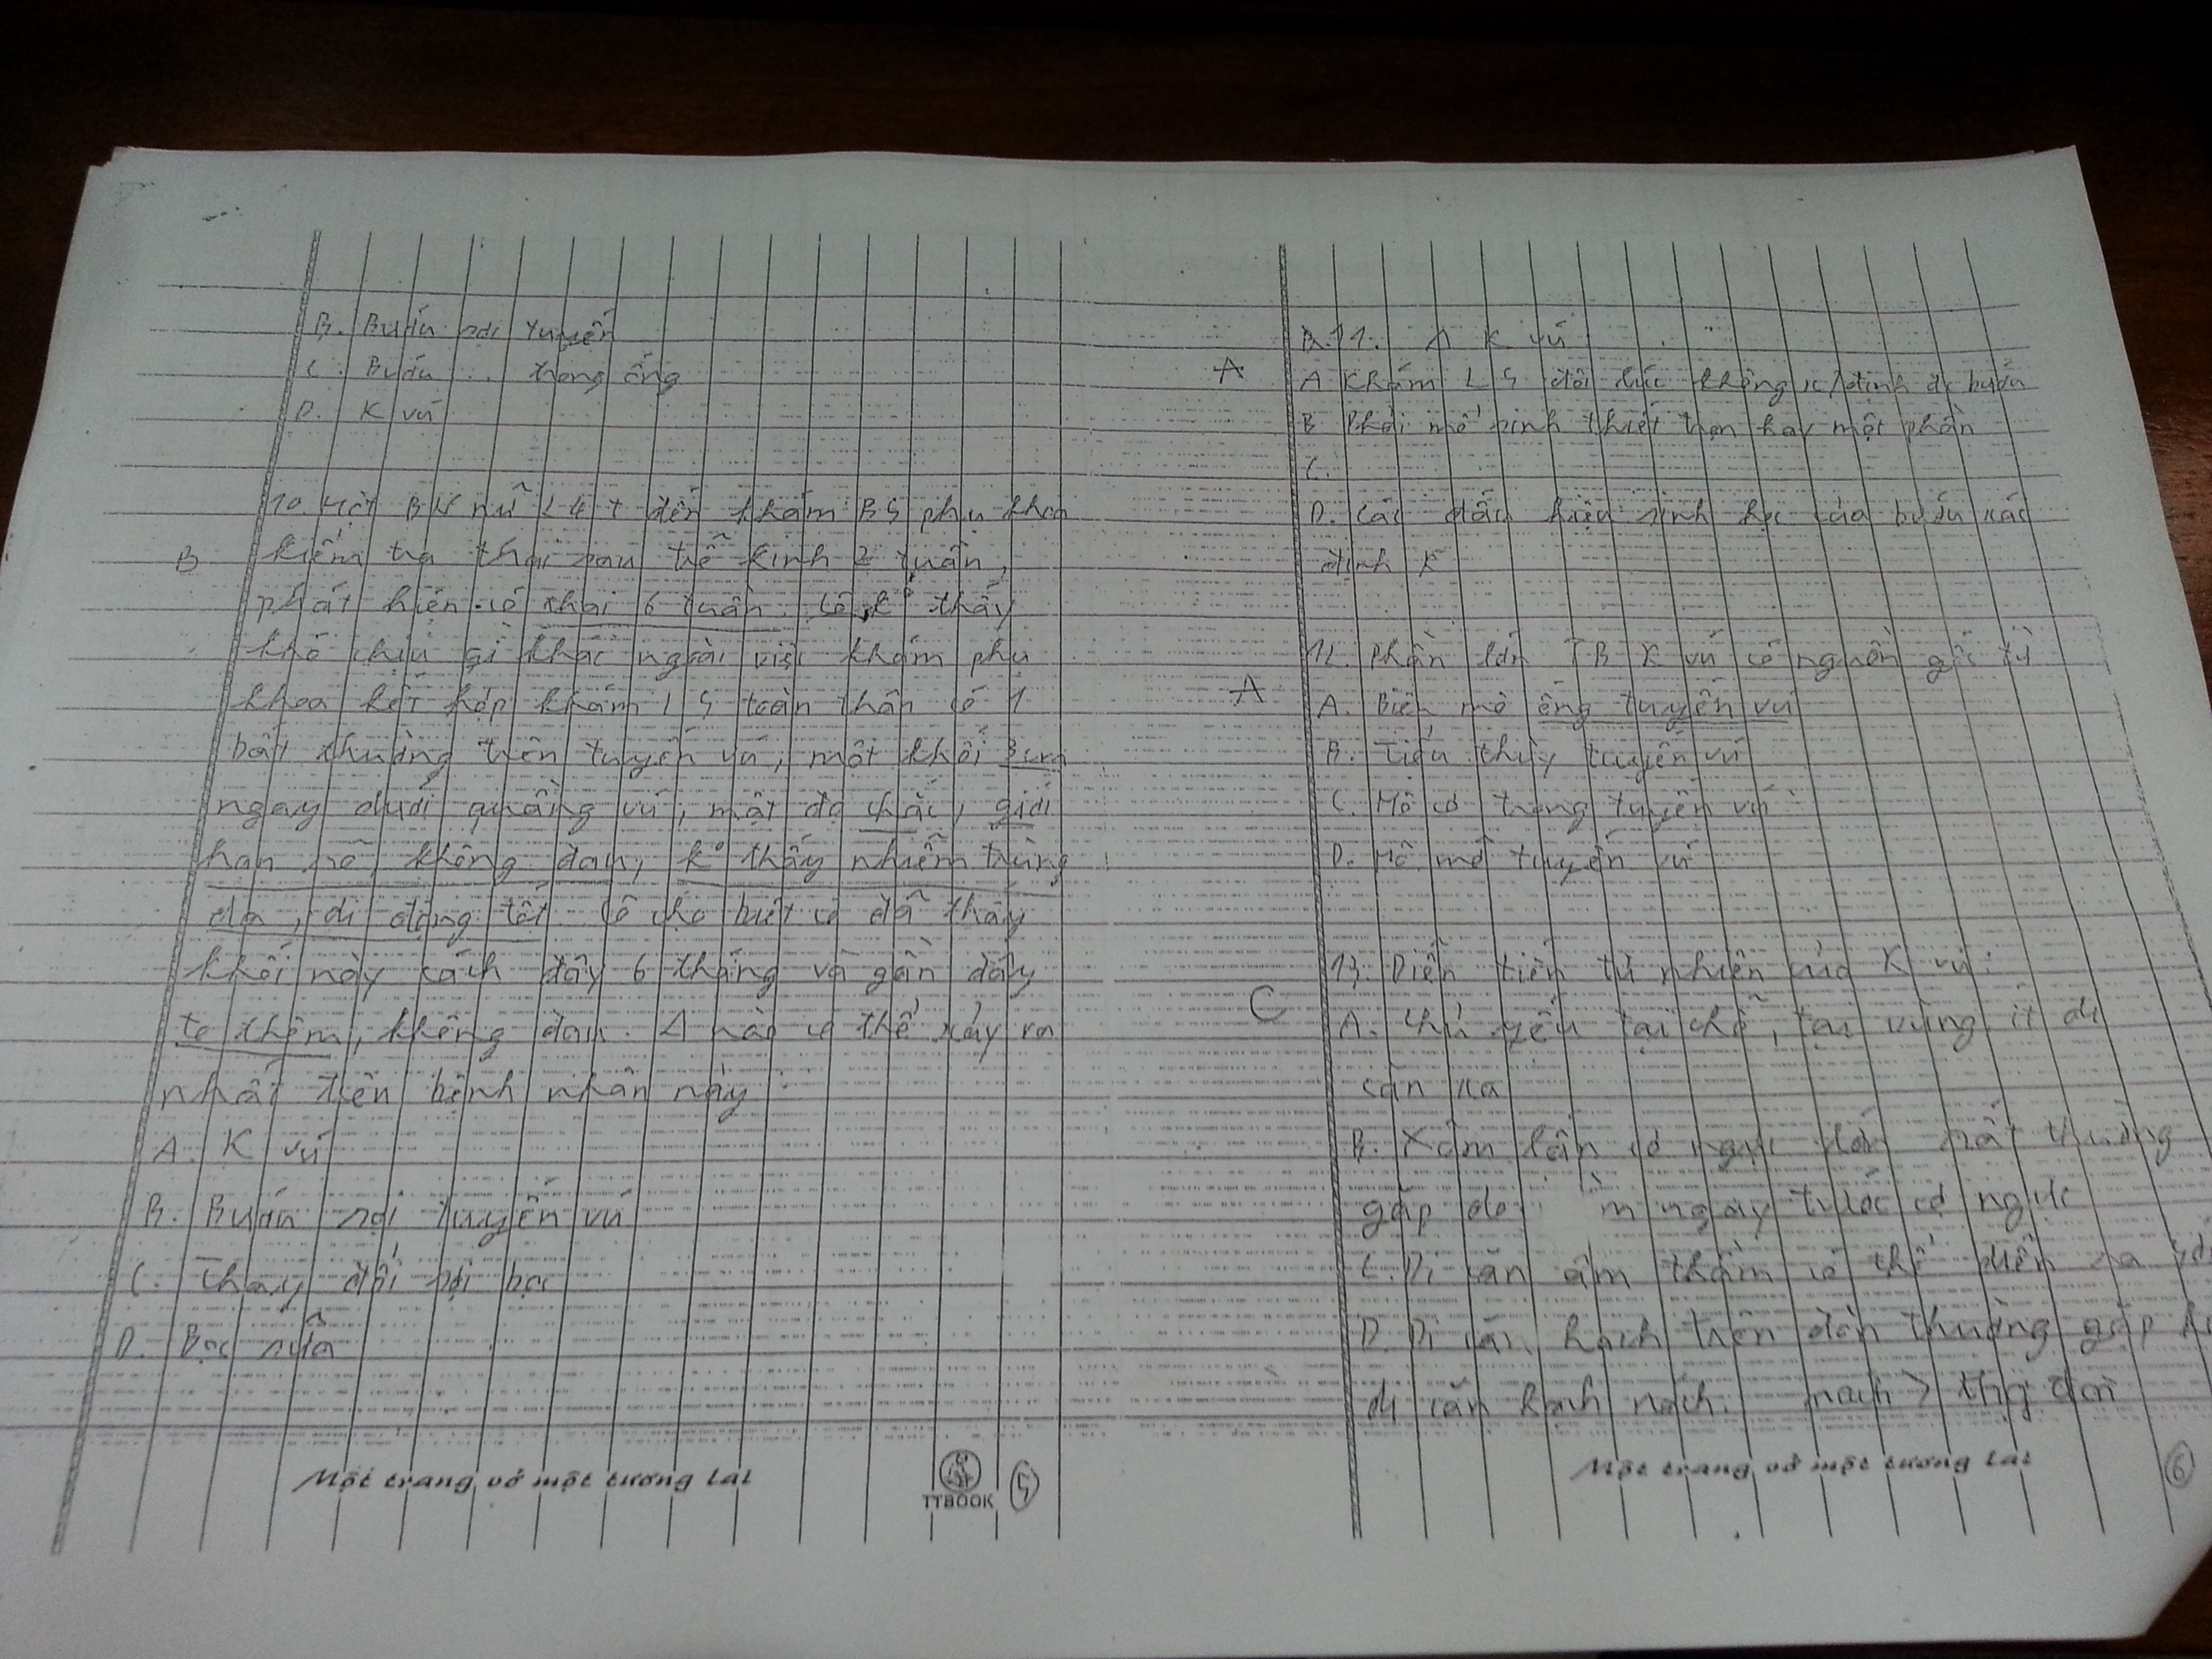 B. Bướu sợi tuyến
C. Bướu ... trong ống
D. K vú
10 Một BN nữ 24 t đến khám BS phụ khoa
B kiểm tra thai sau trễ kinh 2 tuần,
phát hiện có thai 6 tuần. Cô k° thấy
khó chịu gì khác ngoài việc khám phụ
khoa kết hợp khám LS toàn thân có 1
bất thường trên tuyến vú, một khối 3cm
ngay dưới quầng vú, mật độ chắc, giới
hạn rõ, không đau, k° thấy nhiễm trùng
da, di động tốt. Cô cho biết cô đã thấy
khối này cách đây 6 tháng và gần đây
to thêm, không đau. Δ nào có thể xảy ra
nhất trên bệnh nhân này
A. K vú
B. Bướu sợi tuyến vú
C. Thay đổi sợi bọc
D. Bọc sữa
Một trang vở một tương lai
TTBOOK 5
11. Δ K vú
A A Khám LS đôi lúc không x/định đc bướu
B Phải mổ sinh thiết trọn hay một phần
C.
D. Các dấu hiệu sinh học của bướu xác
định K
12. Phần lớn TB K vú có nguồn gốc từ
A A. Biểu mô ống tuyến vú
B. Tiểu thùy tuyến vú
C. Mô cơ trong tuyến vú
D. Mô mỡ tuyến vú
13. Diễn tiến tự nhiên của K vú:
C A. Chủ yếu tại chỗ, tại vùng, ít di
căn xa
B. Xâm lấn cơ ngực lớn rất thường
gặp do m ngay trước cơ ngực
C. Di căn âm thầm có thể diễn ra
D. Di căn hạch trên đòn thường gặp
di căn hạch nách. nách > trên đòn
Một trang vở một tương lai
6